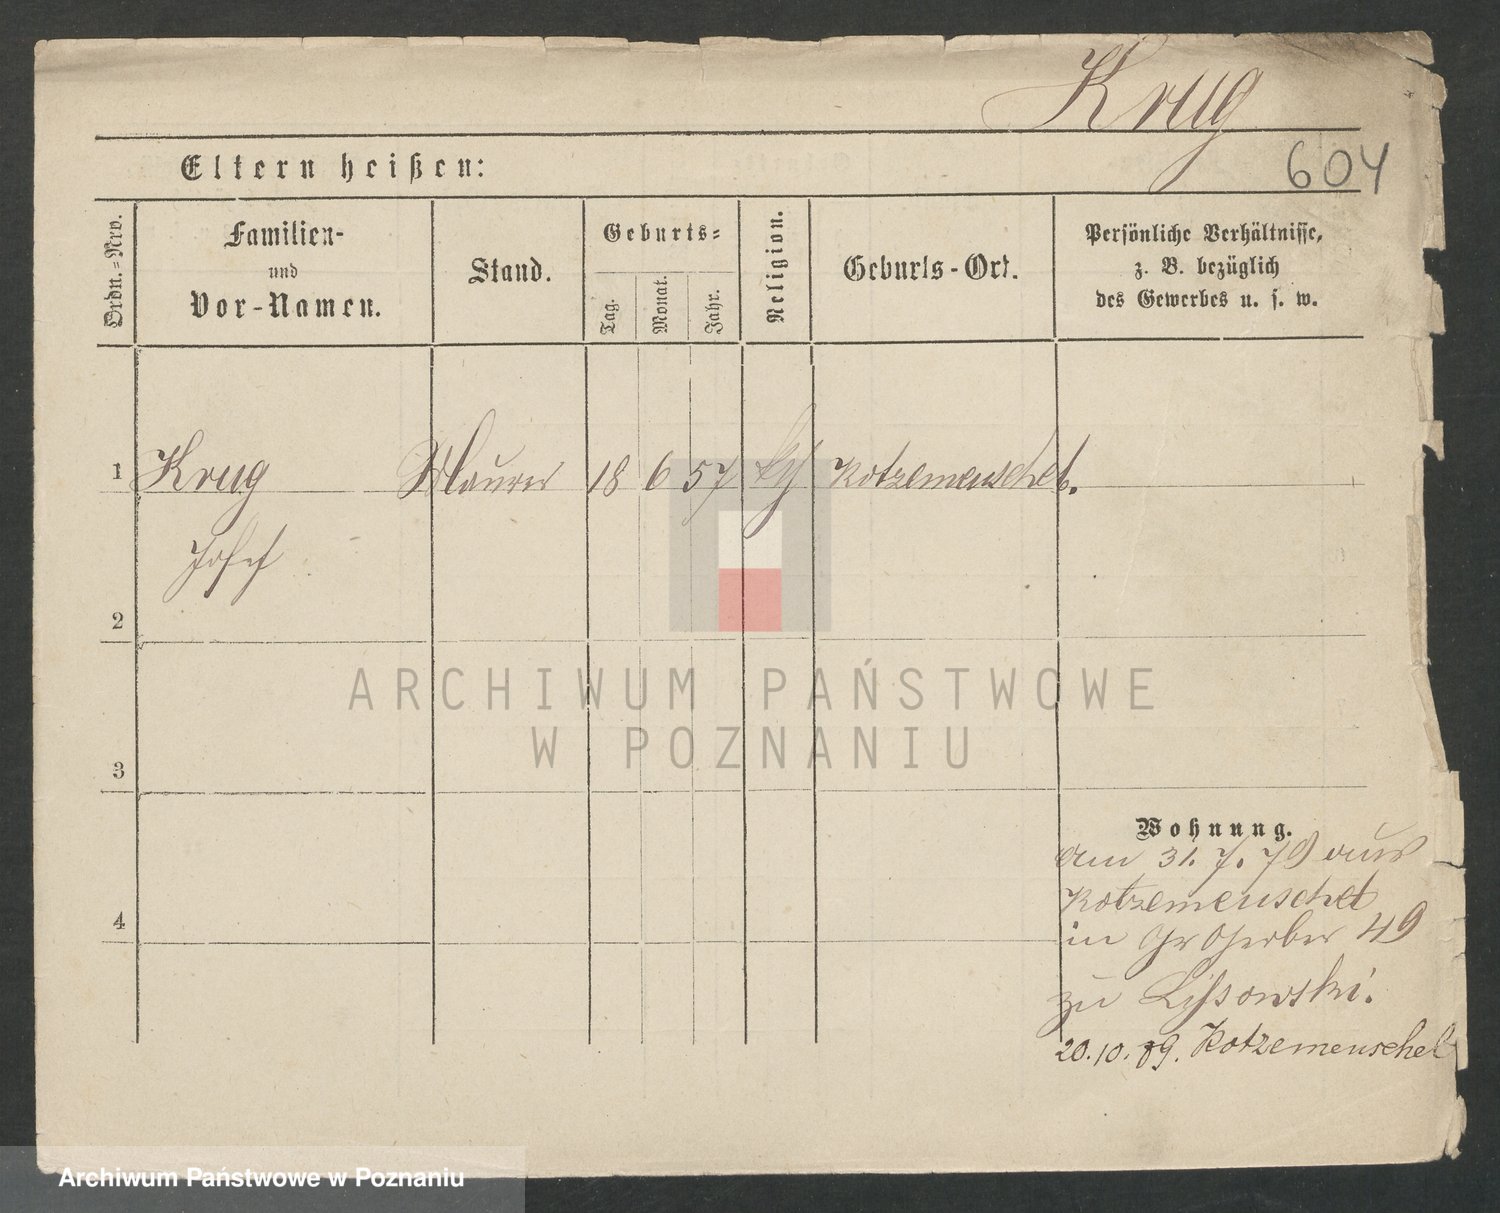 Krug
604
Eltern heißen:
Ordn.=Nro.
Familien-
und
Vor-Namen.
Stand.
Geburts=
Tag.
Monat.
Jahr.
Religion.
Geburts-Ort.
Persönliche Verhältnisse,
z. B. bezüglich
des Gewerbes u. s. w.
1 Krug Maurer 18 6 57 Kotzemeuschel.
Josef
2
3
4
Wohnung.
am 31. 7. 79 aus
Kotzemeuschel
in Gr Gerber 49
zu Lissowski.
20. 10. 89. Kotzemeuschel
ARCHIWUM PAŃSTWOWE
W POZNANIU
Archiwum Państwowe w Poznaniu